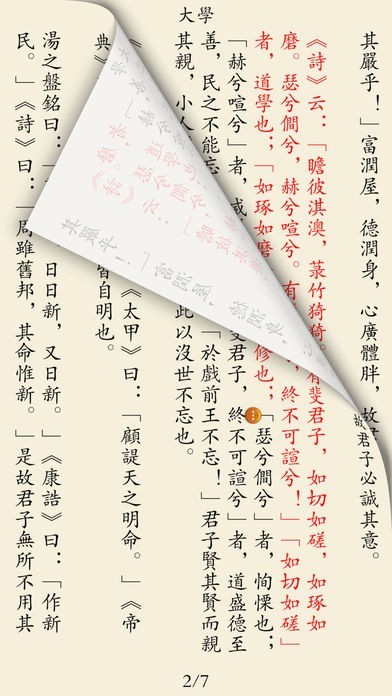 大學
其嚴乎！」富潤屋，德潤身，心廣體胖，故君子必誠其意。
《詩》云：「瞻彼淇澳，菉竹猗猗。有斐君子，如切如磋，如琢如
磨。瑟兮僩兮，赫兮喧兮。有，終不可諠兮！」「如切如磋」
者，道學也；「如琢如磨修也；「瑟兮僩兮」者，恂慄也；
「赫兮喧兮」者，威斐君子，終不可諠兮」者，道盛德至
善，民之不能忘「於戲前王不忘！」君子賢其賢而親
其親，小人此以沒世不忘也。
《《太甲》曰：「顧諟天之明命。」《帝
典》皆自明也。
湯之盤銘曰：日日新，又日新。」《康誥》曰：「作新
民。」《詩》曰：「周雖舊邦，其命惟新。」是故君子無所不用其
2/7